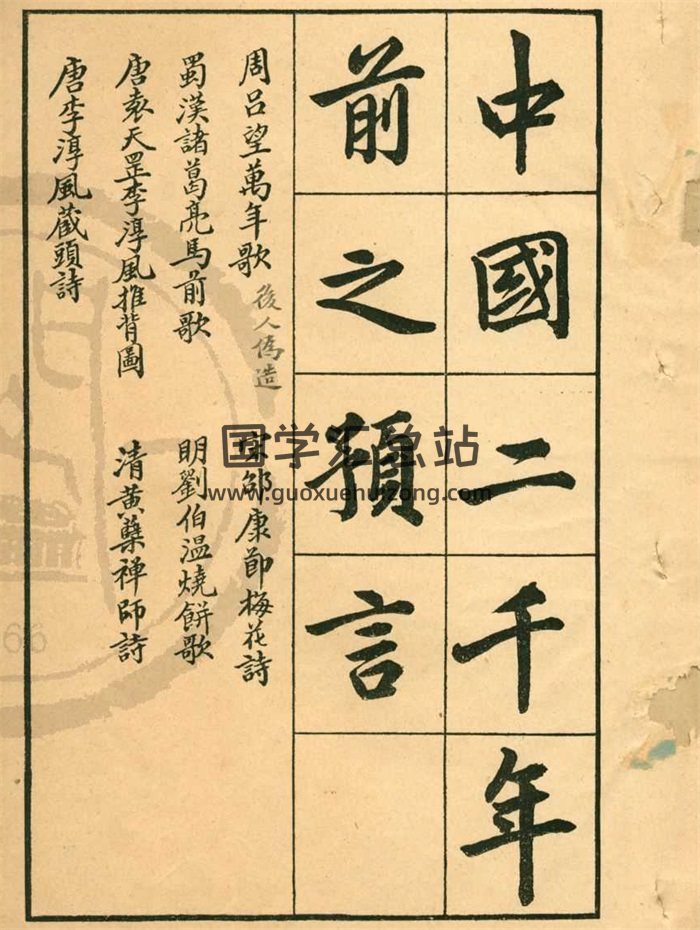 中國二千年
前之預言
周呂望萬年歌 後人偽造
蜀漢諸葛亮馬前歌
唐袁天罡李淳風推背圖
唐李淳風藏頭詩
宋邵康節梅花詩
明劉伯溫燒餅歌
清黃蘗禪師詩
国学汇总站
www.guoxuehuizong.com
66